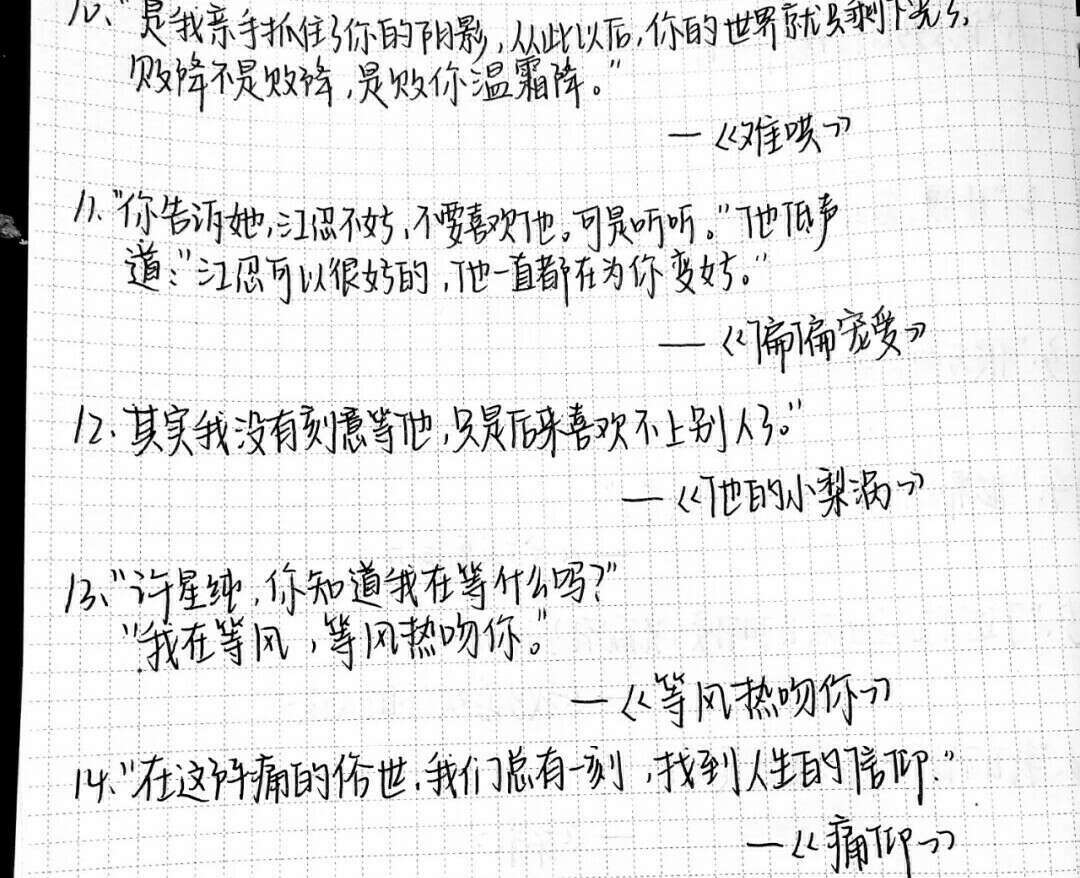 10、"是我亲手抓住了你的阴影,从此以后,你的世界就只剩下光了,
败降不是败降,是败你温霜降。"
—《难哄》
11、"你告诉她,江忍不好,不要喜欢他。可是听听。"他低声
道:"江忍可以很好的,他一直都在为你变好。"
—《偏偏宠爱》
12、其实我没有刻意等他,只是后来喜欢不上别人了。"
—《他的小梨涡》
13、"许星纯,你知道我在等什么吗?"
"我在等风,等风热吻你。"
—《等风热吻你》
14、"在这阵痛的俗世,我们总有一刻,找到人生的信仰."
—《痛仰》